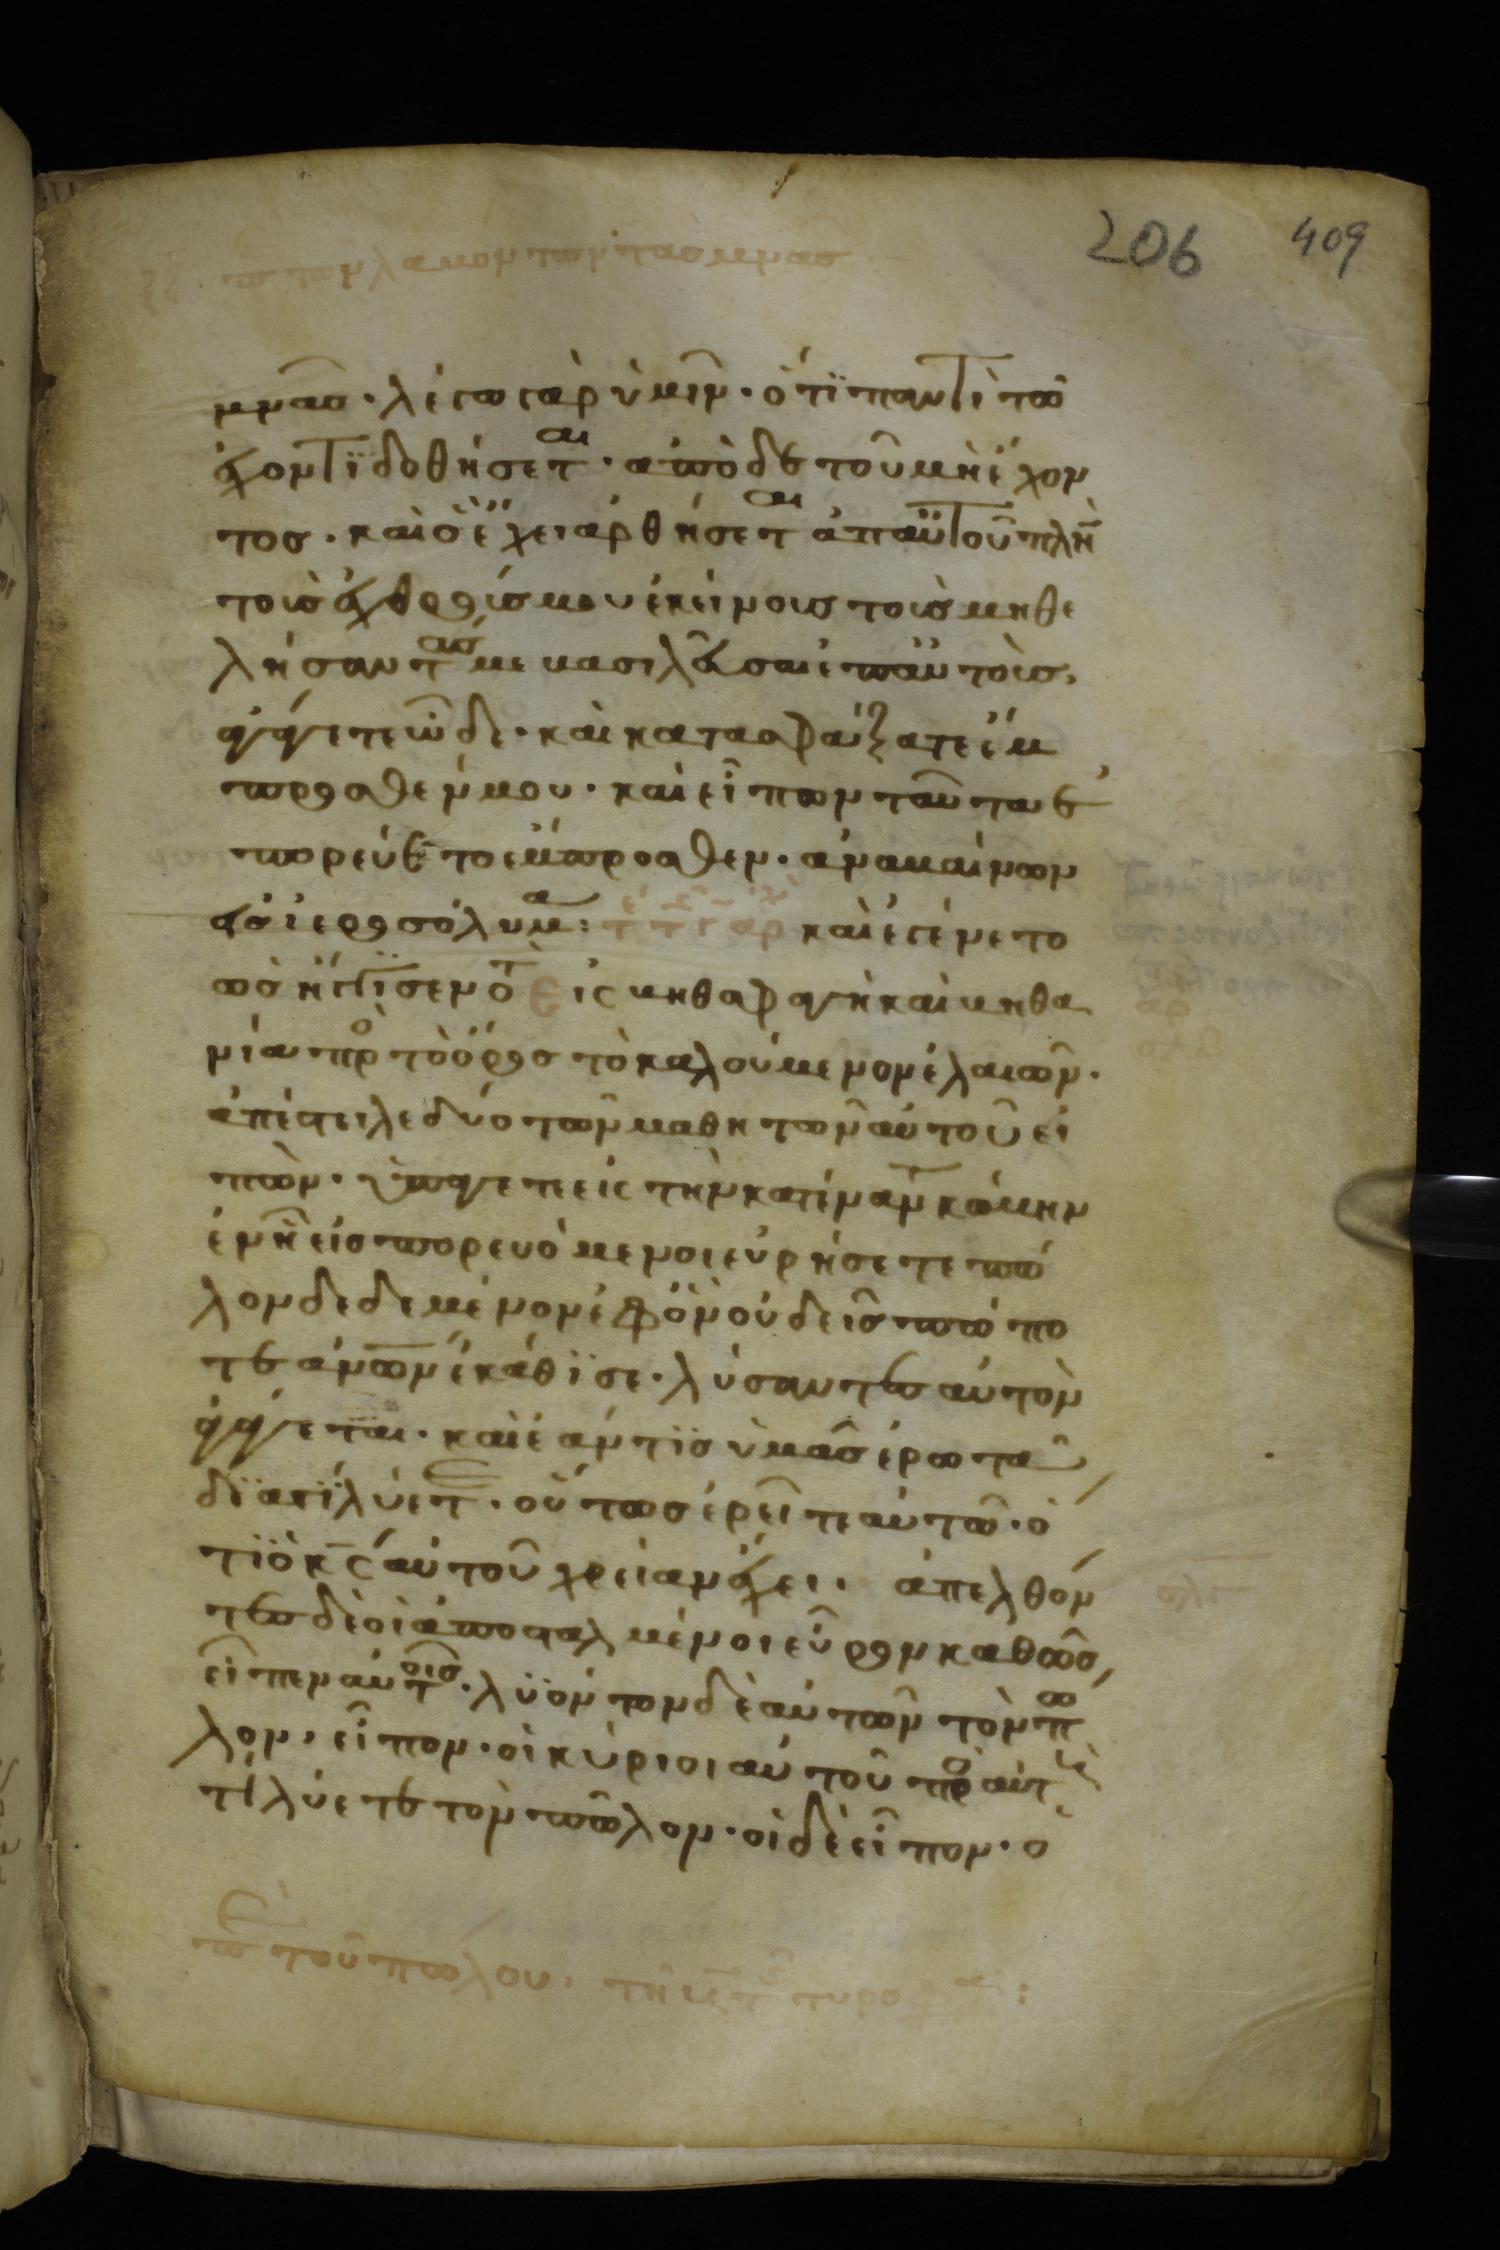 206 409
μνας · λέγω γὰρ ὑμῖν · ὅτϊ παντὶ τῶ
ἔχοντϊ δοθήσεται · ἀπὸ δε τοῦ μὴ ἔχον
τος · καὶ ὃ ἔχει ἀρθήσεται ἀπ αὐτοῦ πλὴν
τοὺσ ἐχθρούσ μου ἐκείνους τοὺσ μὴ θε
λήσαντάσ με βασιλεῦσαι ἐπ αὐτοὺσ,
ἀγάγετε ὧδε · καὶ κατασφάξατε ἔμ
προσθέν μου · καὶ εἰπὼν ταῦτα ἐ
πορεύετο ἔμπροσθεν · ἀναβαίνων
εἰσ ἱεροσόλυμα : καὶ ἐγένετο
ὡσ ἤγγϊσεν ὅτ Εἰς βηθσφαγὴ καὶ βηθα
νίαν πρὸ τὸ ὄροσ τὸ καλούμενον ἐλαιῶν ·
ἀπέστειλε δύο τῶν μαθητῶν αὐτοῦ εἰ
πὼν · ὑπάγετε εἰς τὴν κατέναντι κώμην
ἐν ῆ εἰσπορευόμενοι εὑρήσετε πῶ
λον δεδεμένον ἐφ ὃν οὐδεὶσ πώπο
τε ἀνῶν ἐκάθϊσε · λύσαντεσ αὐτὸν
ἀγάγεται · καὶ ἐάν τϊσ ὑμᾶσ ἐρωτᾶ
δϊατί λύετε · οὕτωσ ἐρεῖτε αὐτῶ · ὅ
τϊ ὁ κς αὐτοῦ χρείαν ἔχει · ἀπελθόν
τεσ δὲ οἱ ἀπεσταλμένοι εὗρον καθὼσ,
εἶπεν αὐτοισ · λϋόντων δὲ αὐτῶν τὸν πω
λον, εἶπον · οἱ κύριοι αὐτοῦ πρὸ αὐτ
τί λύετε τὸν πῶλον · οἱ δὲ εἶπον · ὅ
τοῦ πώλου ·